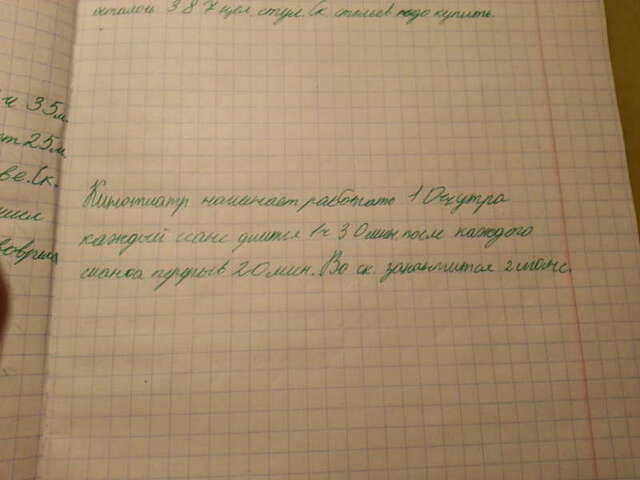 осталось 387 цел. стул. Ск. стульев надо купить.
ч 35м.
ет 25м
ве. Ск.
Кинотиатр начинает работать 10ч утра
каждый сианс длится 1ч 30мин. после каждого
сианса перерыв 20мин. Во ск. закончится 2 сианс.